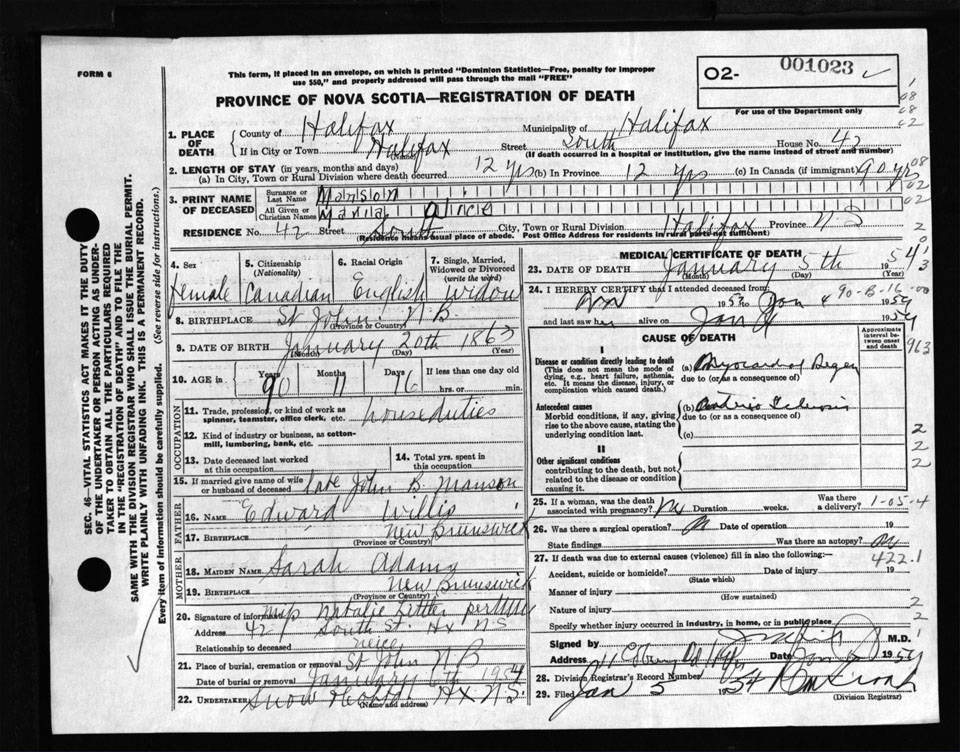 FORM 6
This form, if placed in an envelope, on which is printed "Dominion Statistics—Free, penalty for improper
use $50," and properly addressed will pass through the mail "FREE"
O2- 001023 ✓
For use of the Department only
PROVINCE OF NOVA SCOTIA—REGISTRATION OF DEATH
SEC. 46—VITAL STATISTICS ACT MAKES IT THE DUTY
OF THE UNDERTAKER OR PERSON ACTING AS UNDER-
TAKER TO OBTAIN ALL THE PARTICULARS REQUIRED
IN THE "REGISTRATION OF DEATH" AND TO FILE THE
SAME WITH THE DIVISION REGISTRAR WHO SHALL ISSUE THE BURIAL PERMIT.
WRITE PLAINLY WITH UNFADING INK. THIS IS A PERMANENT RECORD.
Every item of Information should be carefully supplied. (See reverse side for instructions.)
1. PLACE OF DEATH
County of Halifax Municipality of Halifax
If in City or Town Halifax Street South House No. 42
(Name) (If death occurred in a hospital or institution, give the name instead of street and number)
2. LENGTH OF STAY (in years, months and days)
(a) In City, Town or Rural Division where death occurred 12 yrs (b) In Province 12 yrs (c) In Canada (if immigrant) 90 yrs
3. PRINT NAME OF DECEASED
Surname or Last Name Manson
All Given or Christian Names Maria Alice
RESIDENCE No. 42 Street South City, Town or Rural Division Halifax Province N.S
(Residence means usual place of abode. Post Office Address for residents in rural parts not sufficient)
4. Sex
Female
5. Citizenship
(Nationality)
Canadian
6. Racial Origin
English
7. Single, Married,
Widowed or Divorced
(write the word)
Widow
8. BIRTHPLACE St John N.B.
(Province or Country)
9. DATE OF BIRTH January 20th 1863
(Month) (Day) (Year)
10. AGE in Years 90 Months 11 Days 16 If less than one day
hrs. or min.
OCCUPATION
11. Trade, profession, or kind of work as
spinner, teamster, office clerk, etc. house duties
12. Kind of industry or business, as cotton-
mill, lumbering, bank, etc.
13. Date deceased last worked
at this occupation
14. Total yrs. spent in
this occupation
15. If married give name of wife
or husband of deceased late John B. Manson
FATHER
16. NAME Edward Willis
17. BIRTHPLACE New Brunswick
(Province or Country)
MOTHER
18. MAIDEN NAME Sarah Adams
19. BIRTHPLACE New Brunswick
(Province or Country)
20. Signature of informant Mrs Natalie Littler per
Address 42 South St. Hx N.S
Relationship to deceased neice
21. Place of burial, cremation or removal St John N B
Date of burial or removal January 6th 1954
22. UNDERTAKER Snow Hx N.S.
(Name and address)
MEDICAL CERTIFICATE OF DEATH
23. DATE OF DEATH January 5th 1954
(Month) (Day) (Year)
24. I HEREBY CERTIFY that I attended deceased from
1953 to Jan 4 1954
90-B-16-00
and last saw her alive on Jan 4 1954
CAUSE OF DEATH
Approximate
interval be-
tween onset
and death
963
I
Disease or condition directly leading to death
(This does not mean the mode of
dying, e.g., heart failure, asthenia,
etc. It means the disease, injury, or
complication which caused death.)
(a) Myocardial Degen
due to (or as a consequence of)
Antecedent causes
Morbid conditions, if any, giving
rise to the above cause, stating the
underlying condition last.
(b) Arterio Sclerosis
due to (or as a consequence of)
(c)
II
Other significant conditions
contributing to the death, but not
related to the disease or condition
causing it.
25. If a woman, was the death
associated with pregnancy? No Duration weeks. Was there
a delivery? 1-05-4
26. Was there a surgical operation? N Date of operation 19
State findings Was there an autopsy? No
27. If death was due to external causes (violence) fill in also the following: 422.1
Accident, suicide or homicide? Date of injury 19
(State which)
Manner of injury
(How sustained)
Nature of injury
Specify whether injury occurred in industry, in home, or in public place
Signed by M.D.
Address Date Jan 1954
28. Division Registrar's Record Number
29. Filed Jan 5 1954
(Division Registrar)